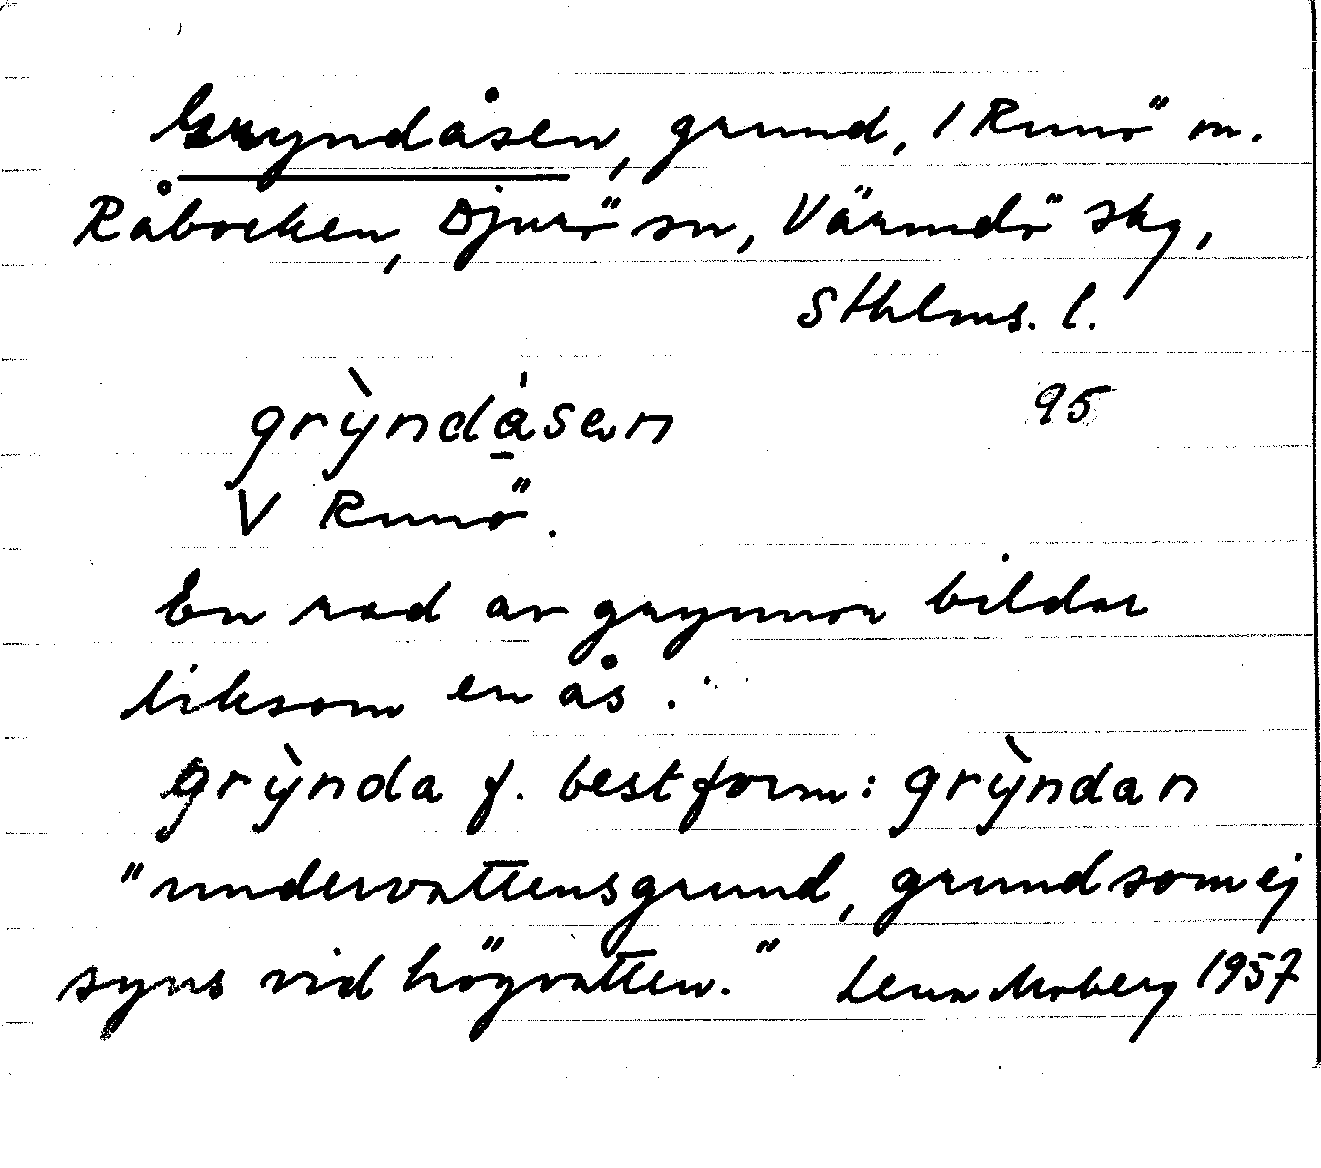 Gryndåsen, grund, 1 Runö m.
Råbocken, Djurö sn, Värmdö skg,
Sthlms. l.
grỳndåsen 95
V Runö.
En rad av grynnor bildar
liksom en ås.
grỳnda f. best form: grỳndan
"undervattensgrund, grund som ej
syns vid högvatten." Lena Moberg 1957